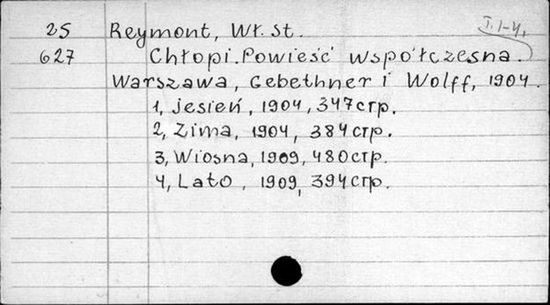 25 Reymont, Wł. St. T. 1-4.
627 Chłopi. Powieść współczesna.
Warszawa, Gebethner i Wolff, 1904.
1, Jesień, 1904, 347 стр.
2, Zima, 1904, 384 стр.
3, Wiosna, 1909, 480 стр.
4, Lato, 1909, 394 стр.